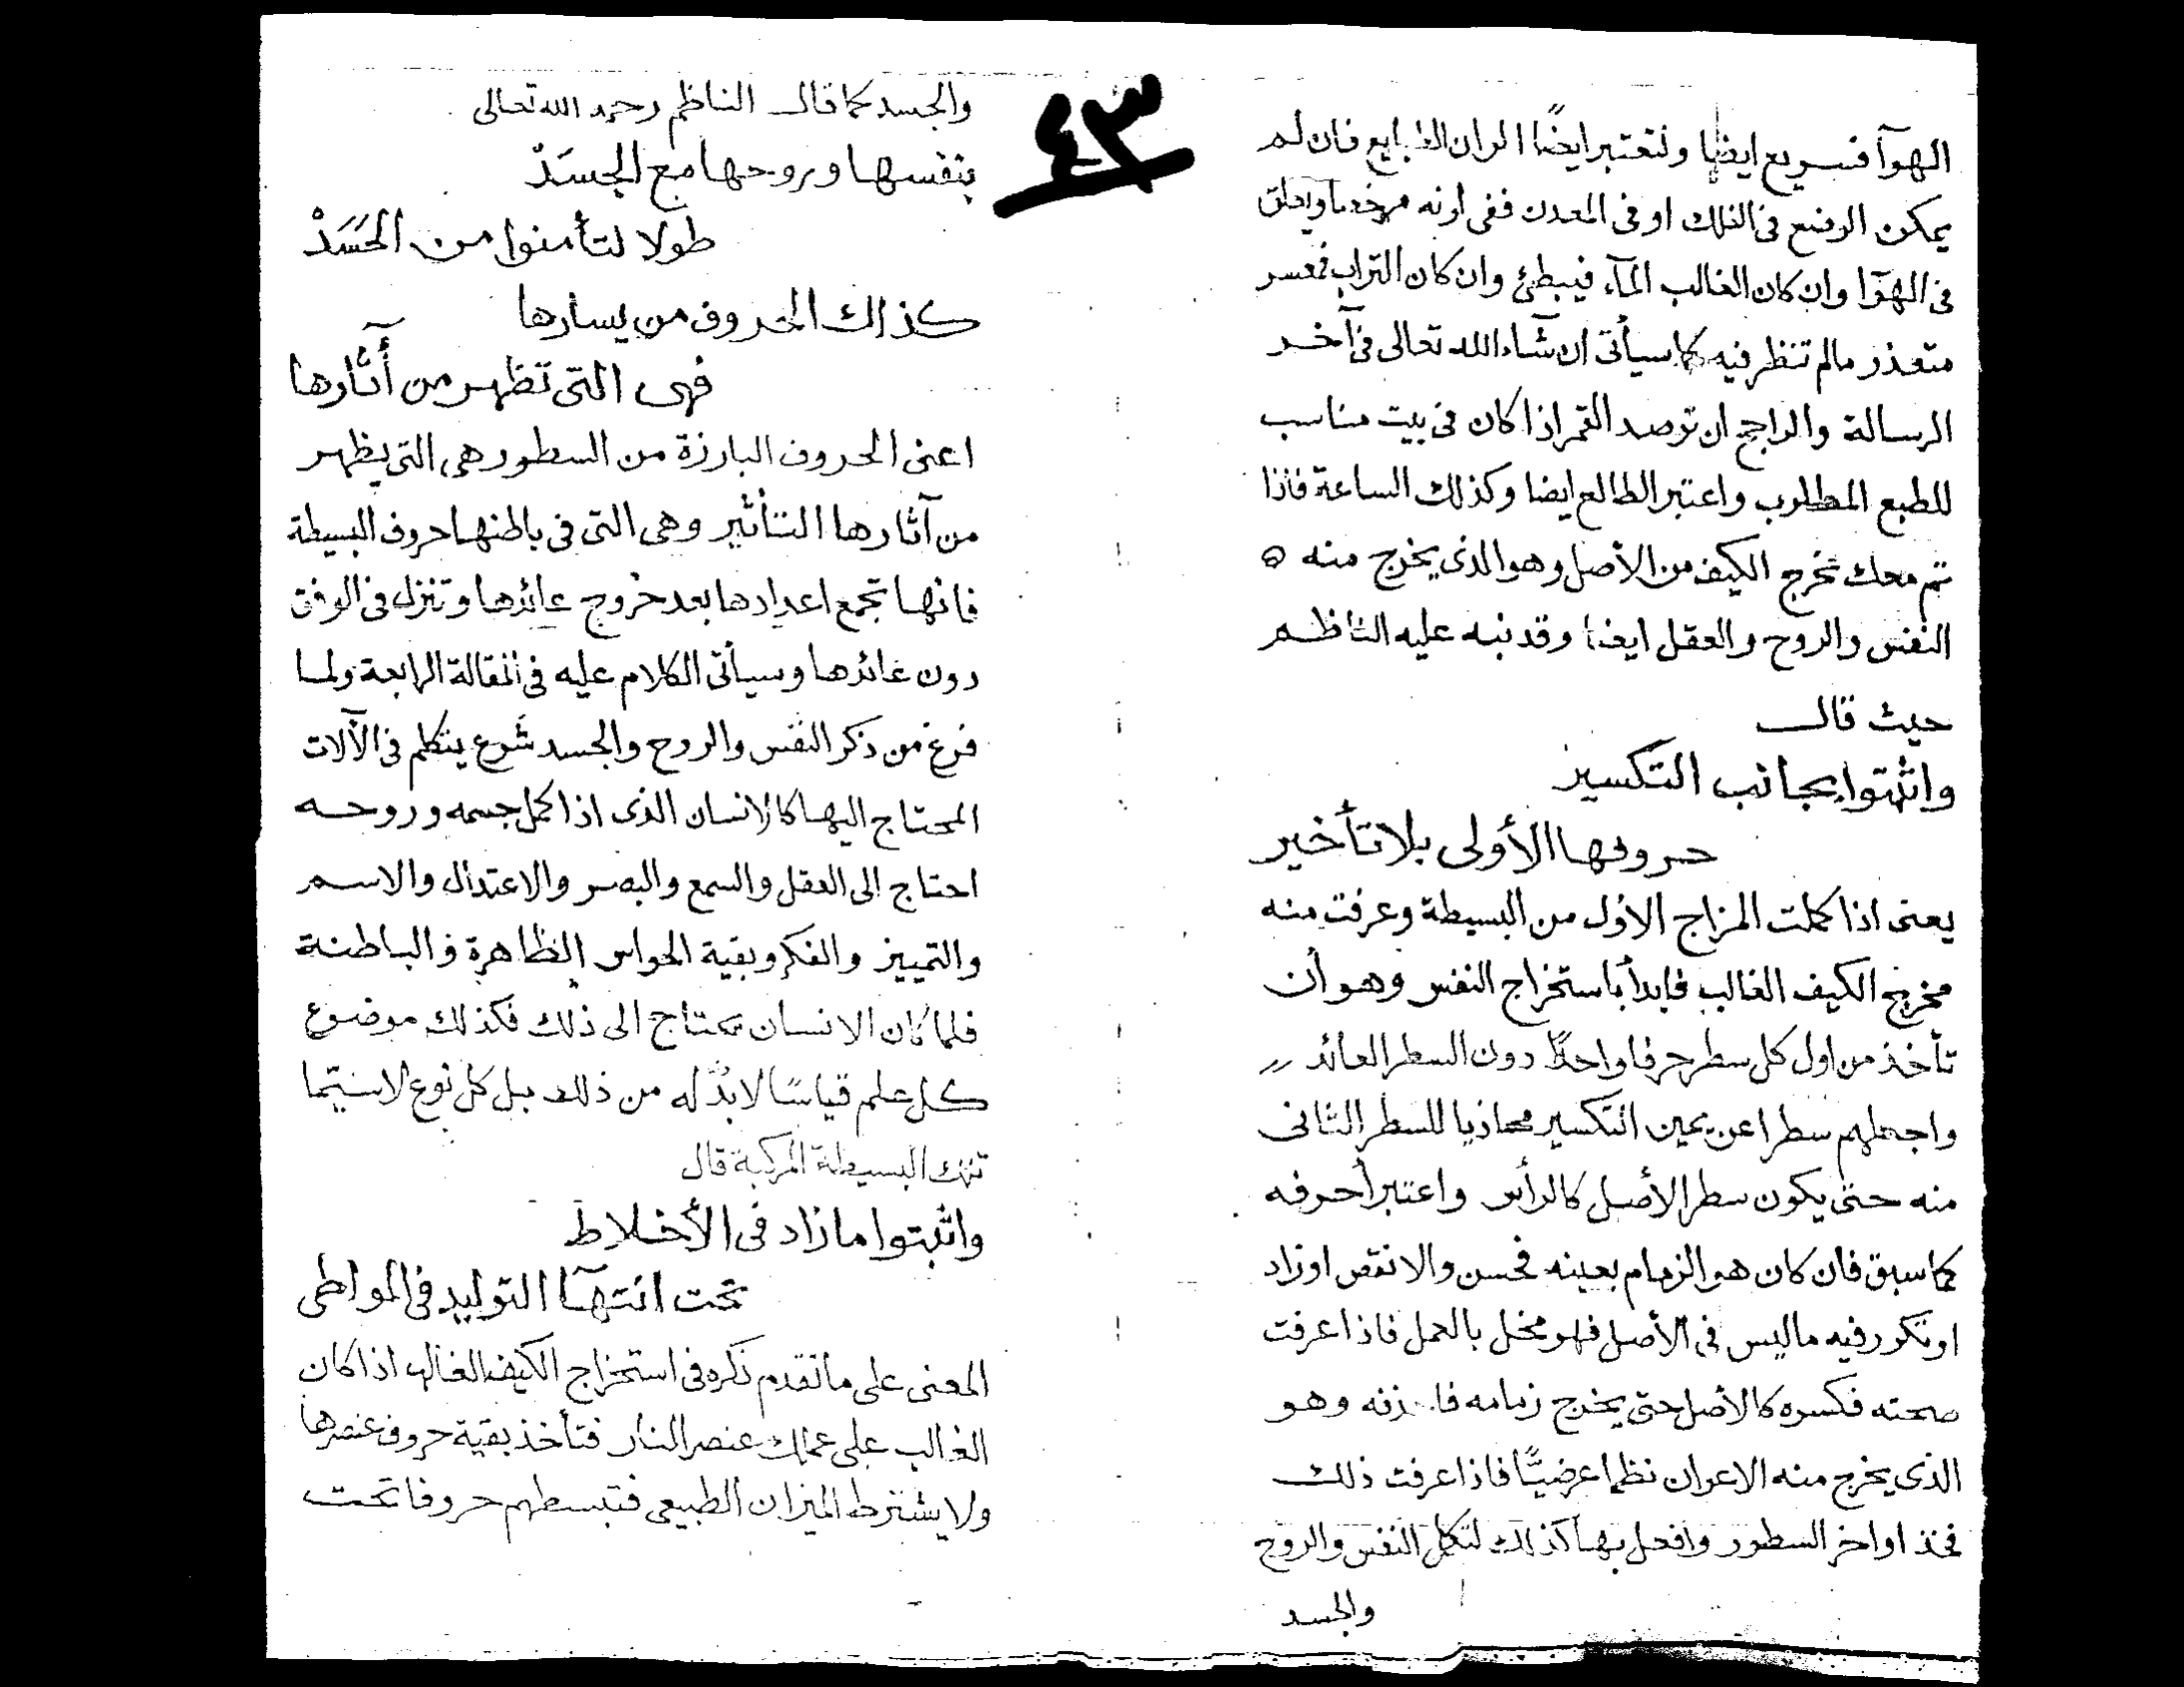 الهوآ فسريع ايضا ولتعتبر ايضًا الران الطبايع فان لم
يمكن الرفع فى الفلك او فى المعدن ففى اونه مرخصا ويعلق
فى الهوٓا وان كان الغالب المآء فيبطئ وان كان التراب فعسر
متعذر مالم تنظر فيه كما سيأتى ان شآء الله تعالى فى آخر
الرسالة والراجح ان توصد القمر اذا كان فى بيت مناسب
للطبع المطلوب واعتبر الطالع ايضا وكذلك الساعة فاذا
تم معك تخرج الكيف من الأصل وهو الذى يخرج منه
النفس والروح والعقل ايضا وقد نبه عليه الناظم
حيث قال
واثبتوا بجانب التكسير
حروفها الأولى بلا تأخير
يعنى اذا كملت المزاج الاول من البسيطة وعرفت منه
مخرج الكيف الغالب فابدأ باستخراج النفس وهو أن
تأخذ من اول كل سطر حرفا واحدًا دون السطر العائد
واجعلهم سطرا عن يمين التكسير محاذيا للسطر الثانى
منه حتى يكون سطر الأصل كالرأس واعتبر أحرفه
كما سبق فان كان هو الزمام بعينه فحسن والا نقص او زاد
او تكور فيه ما ليس فى الأصل فهو مخل بالعمل فاذا عرفت
صحته فكسره كالأصل حتى يخرج زمامه وهو
الذى يخرج منه الاعوان نظما عرضيًّا فاذا عرفت ذلك
فخذ اواخر السطور وافعل بها كذلك لتكمل النفس والروح
والجسد
٤٣
والجسد كما قال الناظم رحمه الله تعالى
بنفسها وروحها مع الجسَدْ
طولا لتأمنوا من الحَسَدْ
كذاك الحروف من يسارها
فهى التى تظهر من أثارها
اعنى الحروف البارزة من السطور هى التى يظهر
من آثارها التأثير وهى التى فى باطنها حروف البسيطة
فانها تجمع اعدادها بعد خروج عائدها وتنزل فى الوفق
دون عائدها وسيأتى الكلام عليه فى المقالة الرابعة ولما
فرغ من ذكر النفس والروح والجسد شرع يتكلم فى الآلات
المحتاج اليها كالانسان الذى اذا كمل جسمه وروحه
احتاج الى العقل والسمع والبصر والاعتدال والاسم
والتمييز والفكر وبقية الحواس الظاهرة والباطنة
فلما كان الانسان يحتاج الى ذلك فكذلك موضوع
كل علم قياسًا لابدّ له من ذلك بل كل نوع لاسيّما
تلك البسيطة المركبة قال
واثبتوا ما زاد فى الأخلاط
تحت انتهآ التوليد فى المواطى
المعنى على ما تقدم ذكره فى استخراج الكيف الغالب اذا كان
الغالب على عملك عنصر النار فتأخذ بقية حروف عنصرها
ولا يشترط الميزان الطبيعى فتبسطهم حروفا تحت